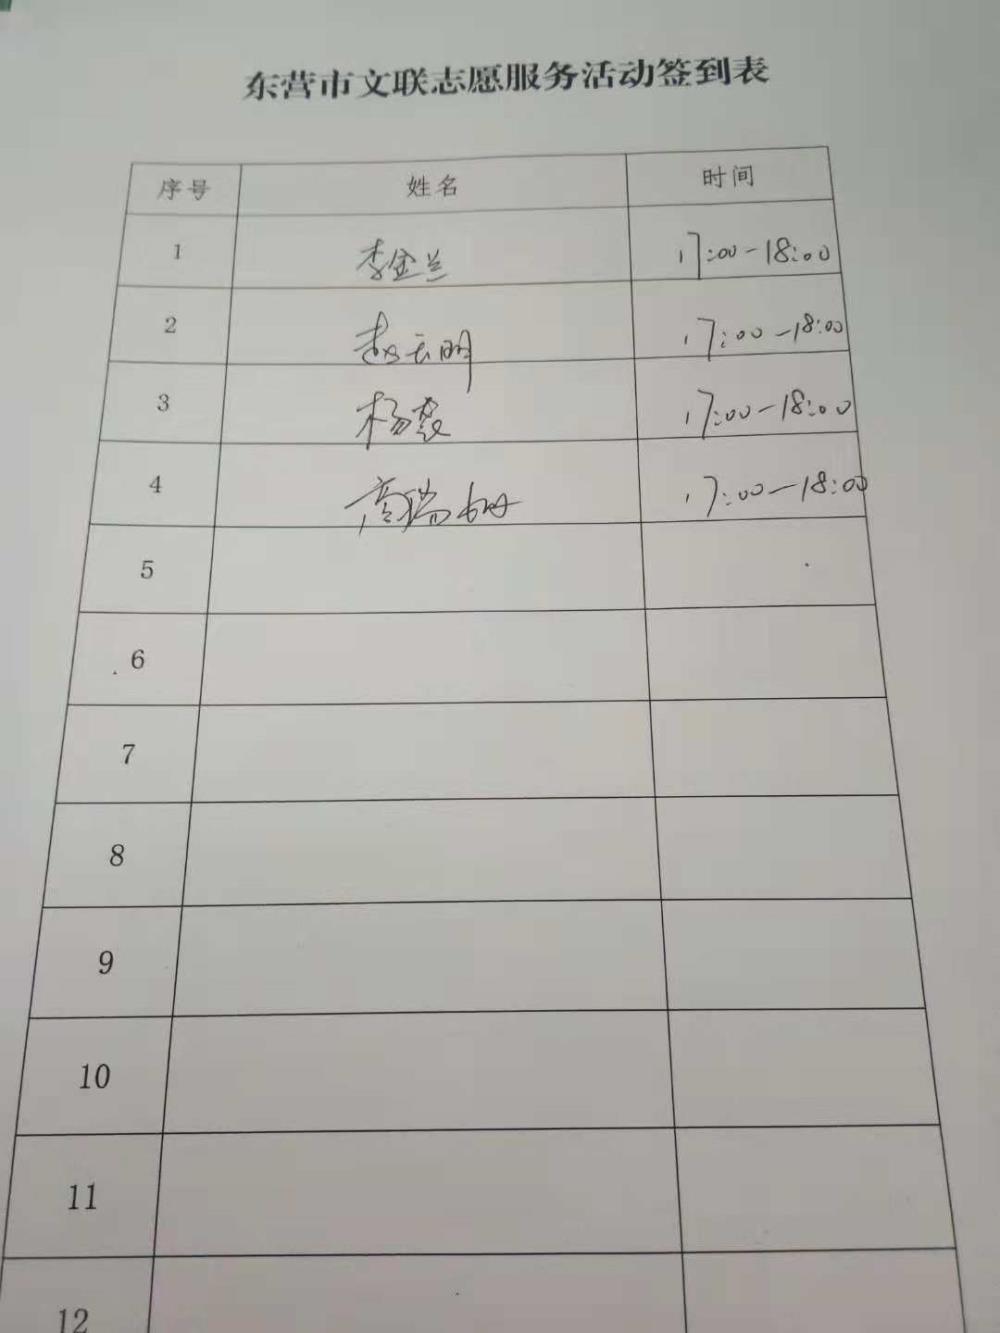 东营市文联志愿服务活动签到表
序号 姓名 时间
1 李金兰 17:00-18:00
2 赵云明 17:00-18:00
3 杨 17:00-18:00
4 高瑞 17:00-18:00
5
6
7
8
9
10
11
12